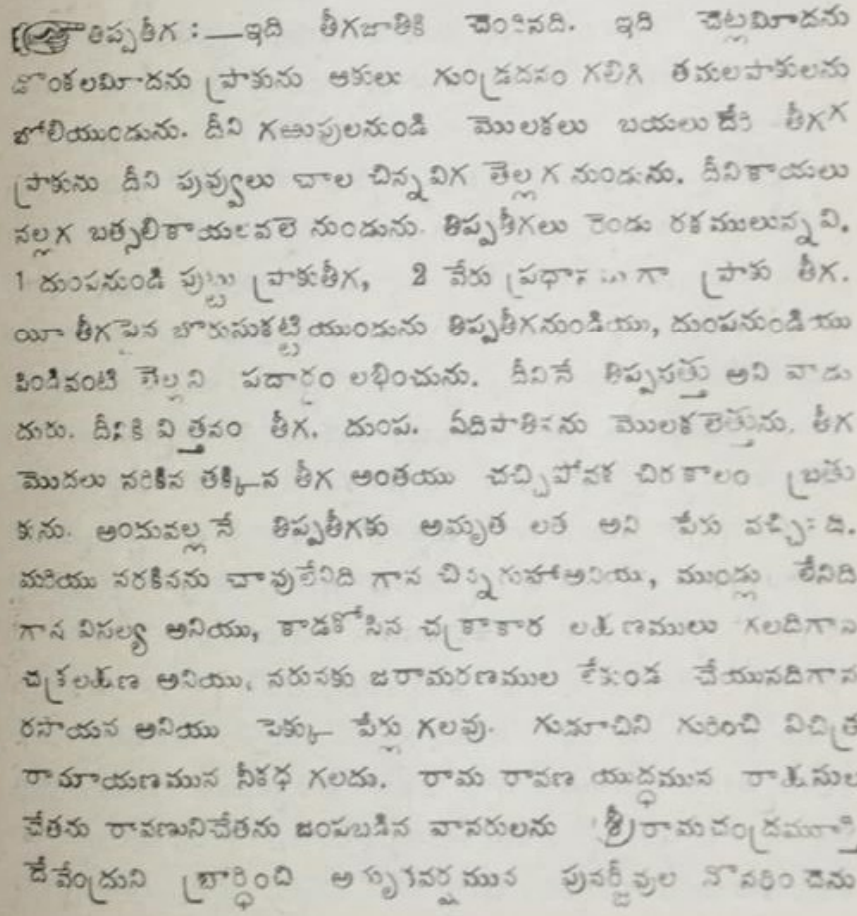 తిప్పతీగ :—ఇది తీగజాతికి చెందినది. ఇది చెట్లమీదను
డొంకలమీదను ప్రాకును ఆకులు గుండ్రదనం గలిగి తమలపాకులను
బోలియుండును. దీని గఱుపులనుండి మొలకలు బయలుదేరి తీగగ
ప్రాకును దీని పువ్వులు చాల చిన్నవిగ తెల్లగ నుండును. దీనికాయలు
నల్లగ బత్సలికాయలవలె నుండును. తిప్పతీగలు రెండు రకములున్నవి.
1 దుంపనుండి పుట్టు ప్రాకుతీగ, 2 వేరు ప్రధానముగా ప్రాకు తీగ.
యీ తీగపైన బొరుసుకట్టి యుండును తిప్పతీగనుండియు, దుంపనుండియు
పిండివంటి తెల్లని పదార్థం లభించును. దీనినే తిప్పసత్తు అని వాడు
దురు. దీనికి విత్తనం తీగ. దుంప. ఏదిపాతినను మొలకలెత్తును. తీగ
మొదలు నరికిన తక్కిన తీగ అంతయు చచ్చిపోవక చిరకాలం బ్రతు
కును. అందువల్లనే తిప్పతీగకు అమృత లత అని పేరు వచ్చినది.
మరియు నరకినను చావులేనిది గాన చిన్నగుహాఅనియు, ముండ్లు లేనిది
గాన విసల్య అనియు, కాడకోసిన చక్రాకార లక్షణములు గలదిగాన
చక్రలక్షణ అనియు, నరునకు జరామరణముల లేకుండ చేయునదిగాన
రసాయన అనియు పెక్కు పేర్లు గలవు. గుడూచిని గురించి విచిత్ర
రామాయణమున నీకధ గలదు. రామ రావణ యుద్ధమున రాక్షసుల
చేతను రావణునిచేతను జంపబడిన వానరులను శ్రీరామచంద్రమూర్తి
దేవేంద్రుని బ్రార్థించి అమృతవర్షమున పునర్జీవుల నొనరించెను